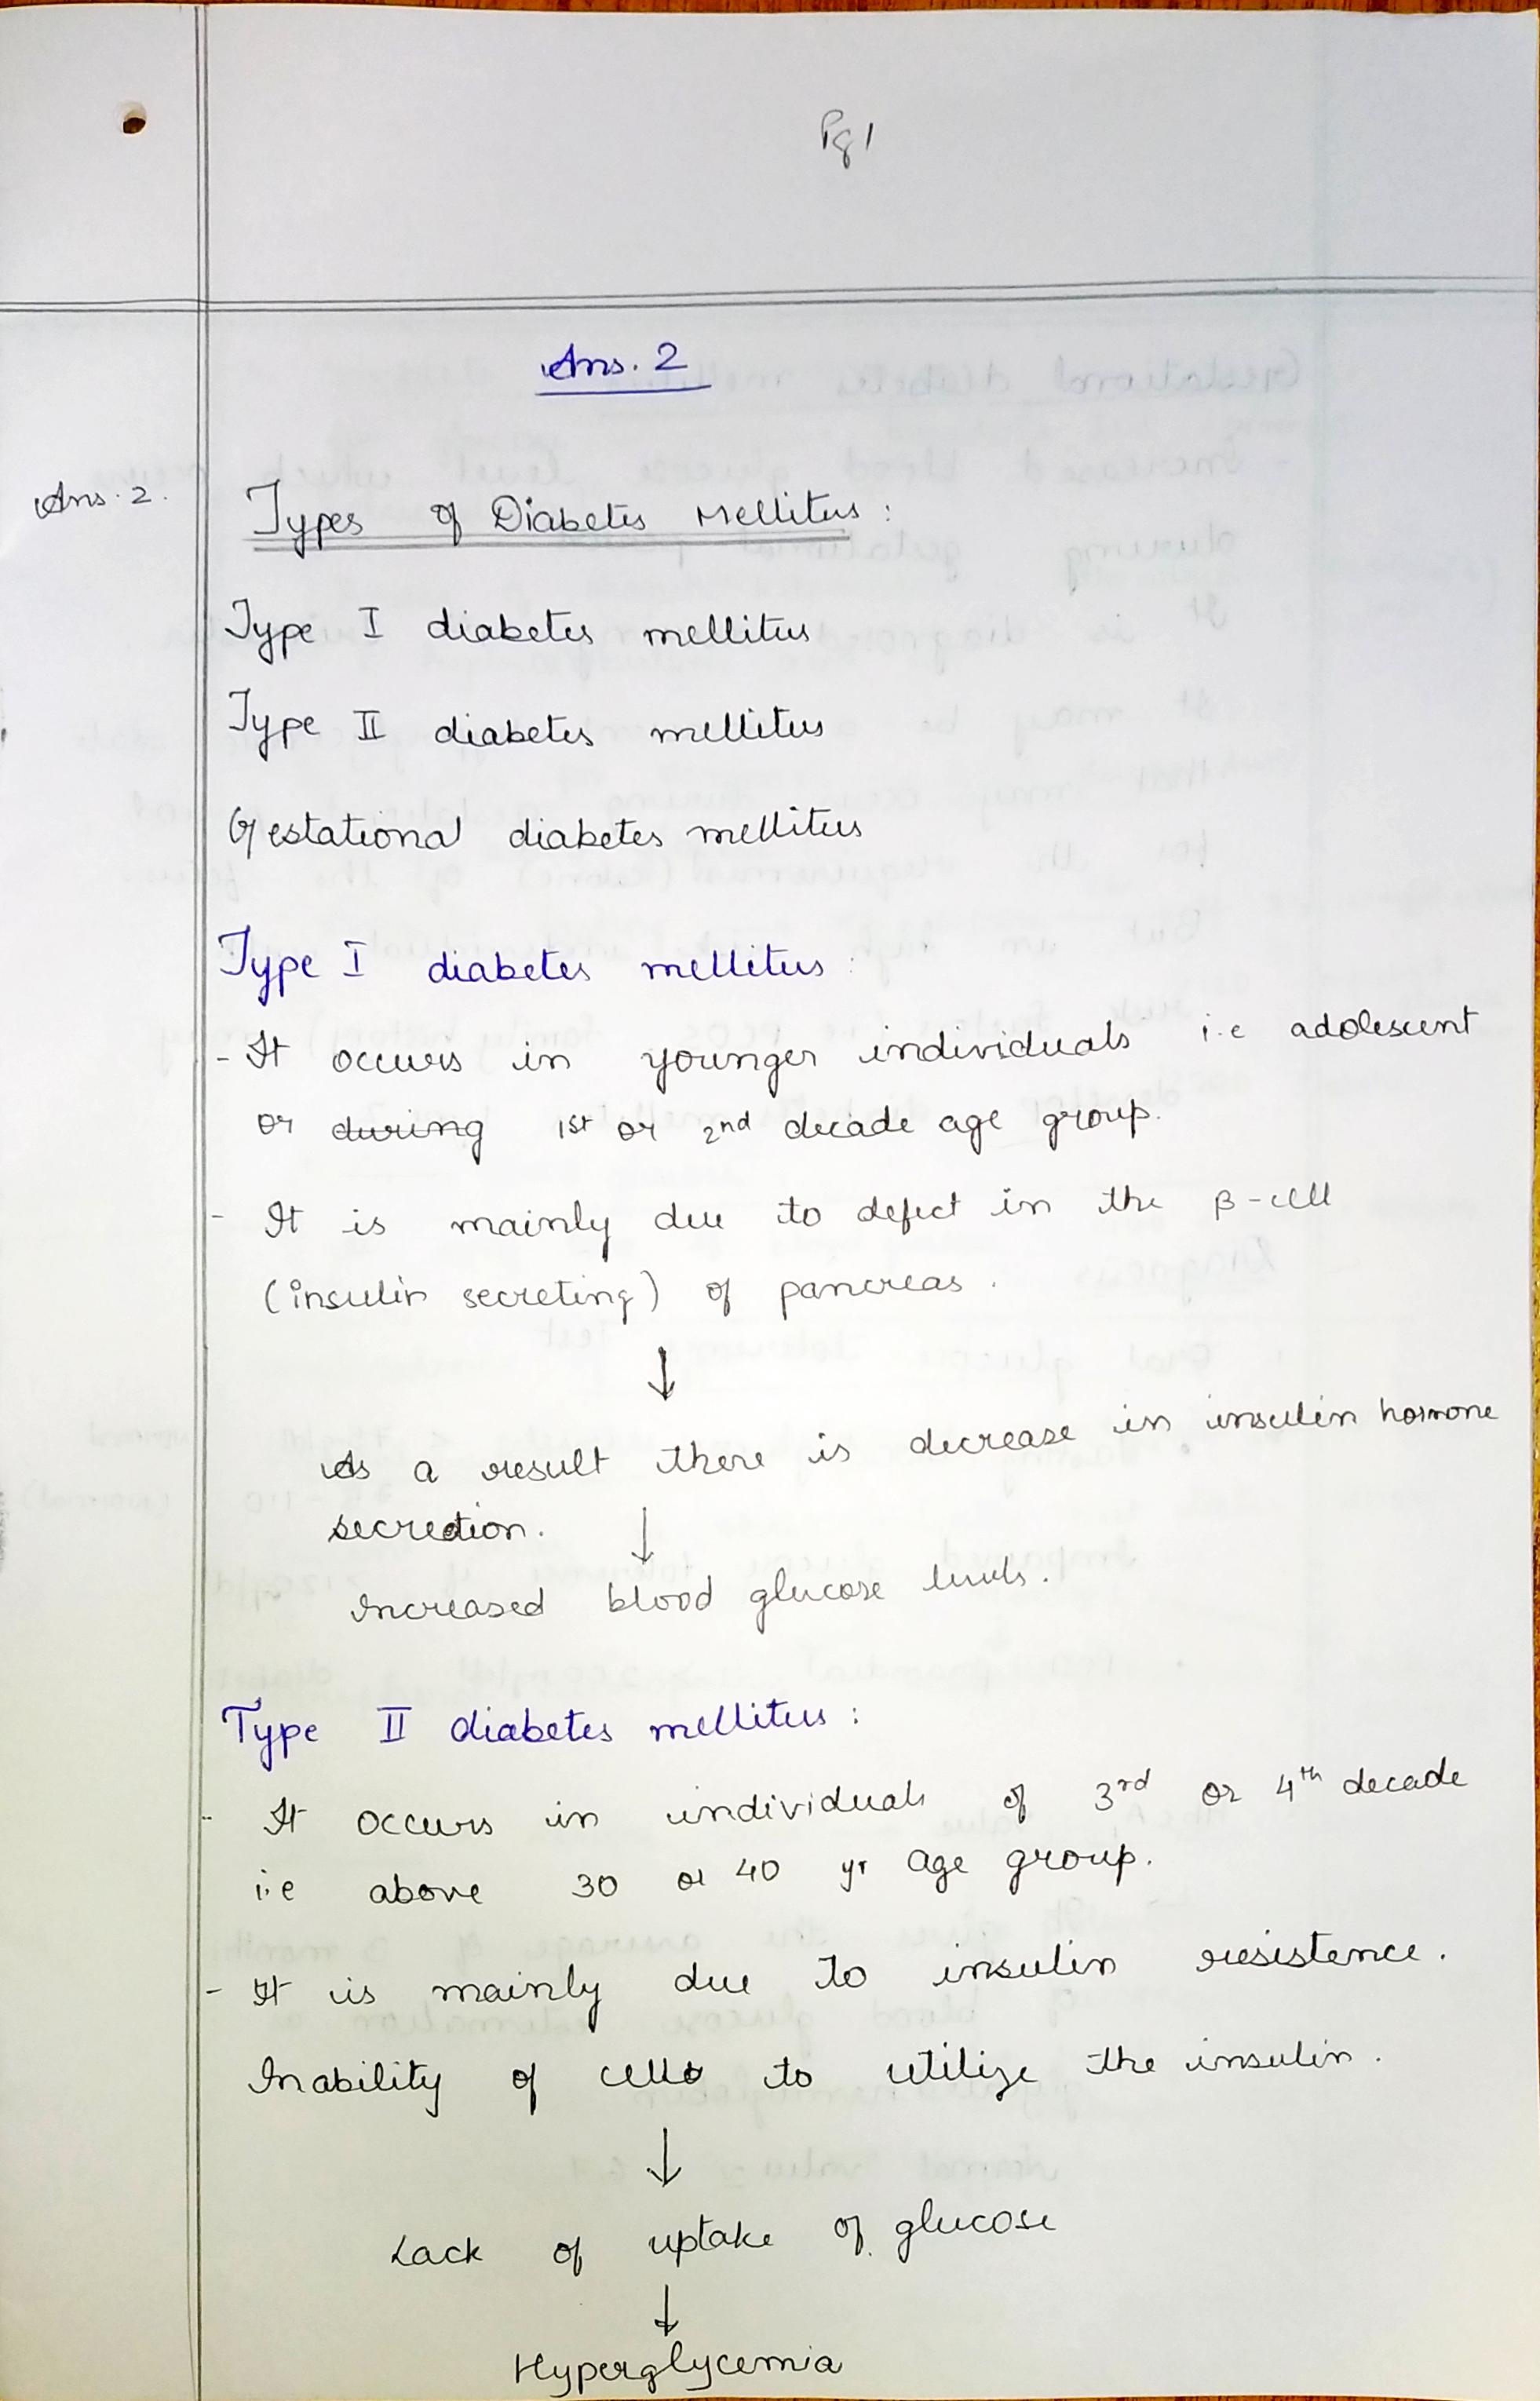 Pg 1
Ans. 2
Ans. 2.
Types of Diabetes Mellitus :
Type I diabetes mellitus
Type II diabetes mellitus
Gestational diabetes mellitus
Type I diabetes mellitus :
- It occurs in younger individuals i.e adolescent
or during 1st or 2nd decade age group.
- It is mainly due to defect in the β-cell
(insulin secreting) of pancreas.
↓
As a result there is decrease in insulin hormone
secretion. ↓
Increased blood glucose levels.
Type II diabetes mellitus :
- It occurs in individuals of 3rd or 4th decade
i.e above 30 or 40 yr age group.
- It is mainly due to insulin resistence.
Inability of cells to utilize the insulin.
↓
Lack of uptake of glucose
↓
Hyperglycemia